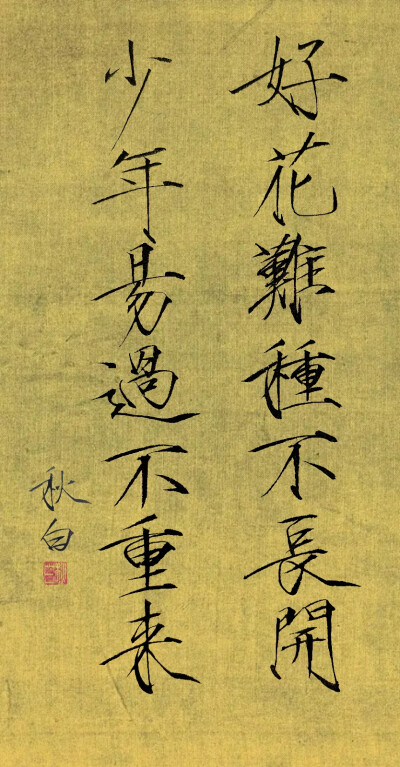 好花難種不長開
少年易過不重来
秋白